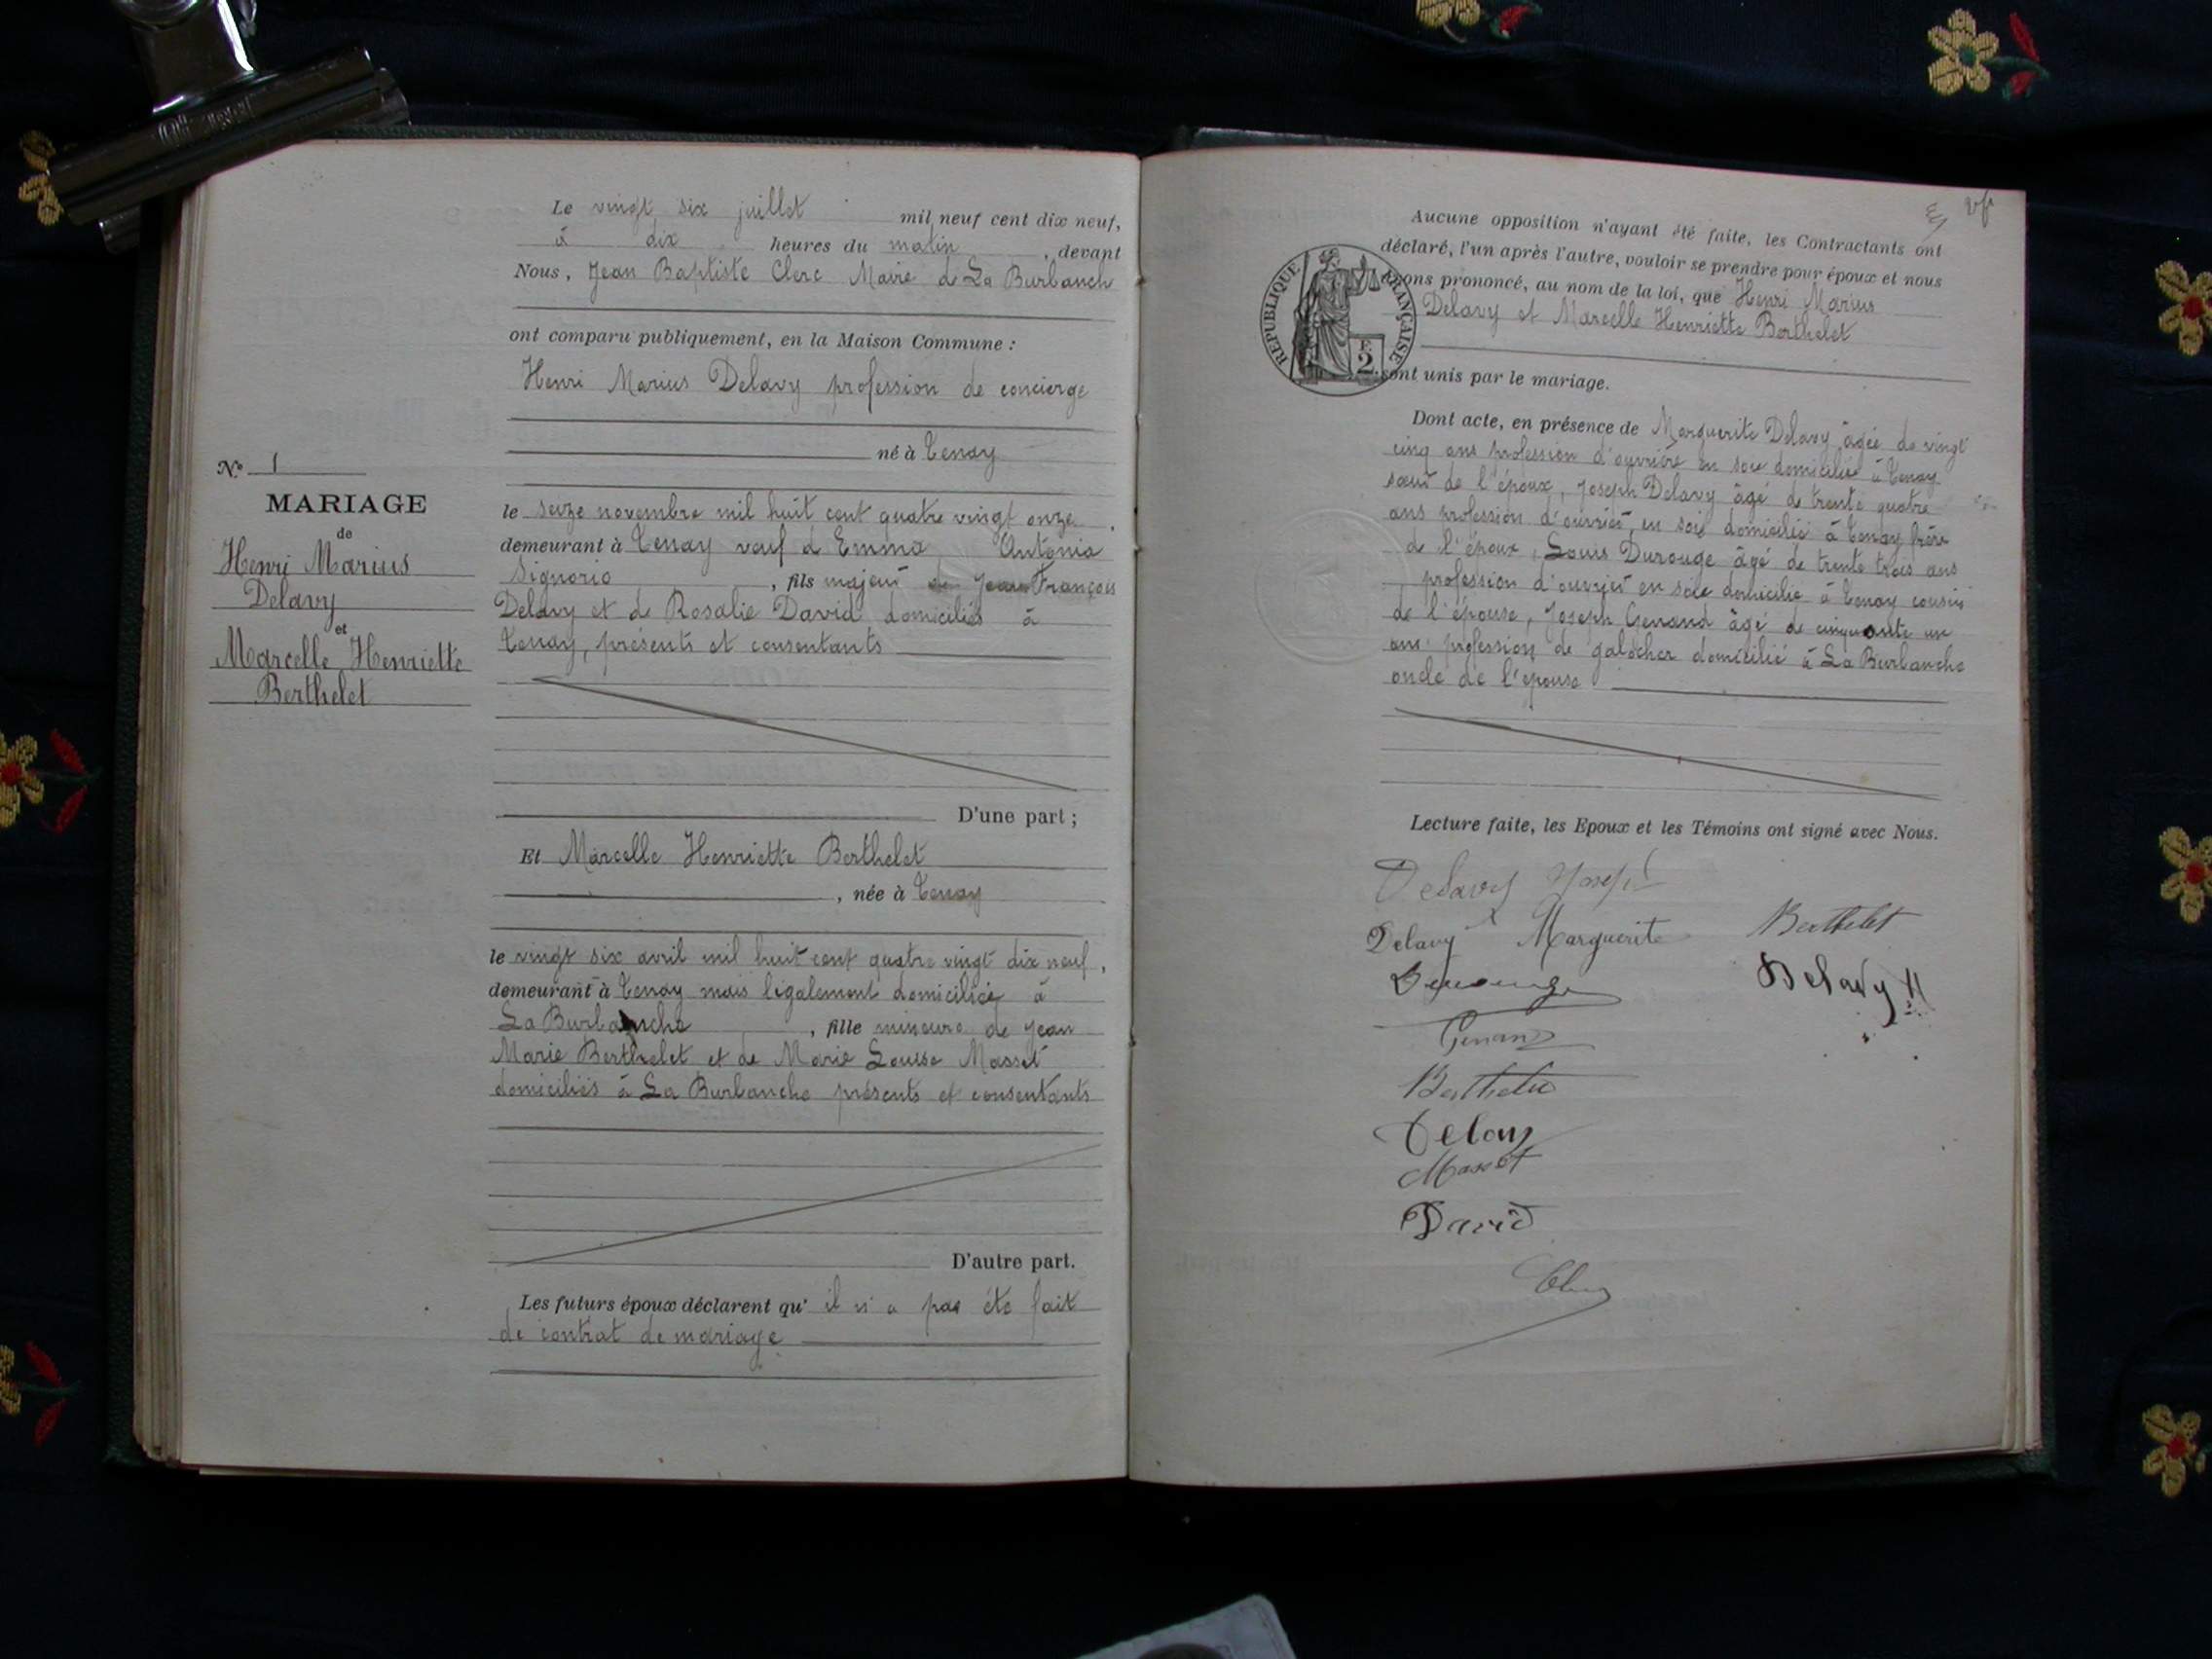 Le vingt six juillet mil neuf cent dix neuf,
à dix heures du matin, devant
Nous, Jean Baptiste Clerc Maire de La Burbanch
ont comparu publiquement, en la Maison Commune :
Henri Marius Delavy profession de concierge
né à Tenay
No 1
MARIAGE
de
Henri Marius
Delavy
et
Marcelle Henriette
Berthelet
le seize novembre mil huit cent quatre vingt onze,
demeurant à Tenay veuf d Emma Antonia
Signorio, fils majeur de Jean François
Delavy et de Rosalie David domiciliés à
Tenay, présents et consentants
D'une part ;
Et Marcelle Henriette Berthelet
, née à Tenay
le vingt six avril mil huit cent quatre vingt dix neuf,
demeurant à Tenay mais légalement domiciliée à
La Burbanche, fille mineure de Jean
Marie Berthelet et de Marie Louise Masset
domiciliés à La Burbanche présents et consentants
D'autre part.
Les futurs époux déclarent qu' il n'a pas été fait
de contrat de mariage
Aucune opposition n'ayant été faite, les Contractants ont
déclaré, l'un après l'autre, vouloir se prendre pour époux et nous
avons prononcé, au nom de la loi, que Henri Marius
Delavy et Marcelle Henriette Berthelet
RÉPUBLIQUE FRANÇAISE
F.
2
sont unis par le mariage.
Dont acte, en présence de Marguerite Delavy âgée de vingt
cinq ans profession d'ouvrière en soie domiciliée à Tenay
sœur de l'époux, Joseph Delavy âgé de trente quatre
ans profession d'ouvrier en soie domicilié à Tenay frère
de l'époux, Louis Durouge âgé de trente trois ans
profession d'ouvrier en soie domicilié à Tenay cousin
de l'épouse, Joseph Genand âgé de cinquante un
ans profession de galocher domicilié à La Burbanche
oncle de l'épouse
Lecture faite, les Epoux et les Témoins ont signé avec Nous.
Delavy Joseph
Delavy Marguerite
Berthelet
Durouge
Delavy H
Genand
Berthelet
Delavy
Masset
David
Clerc